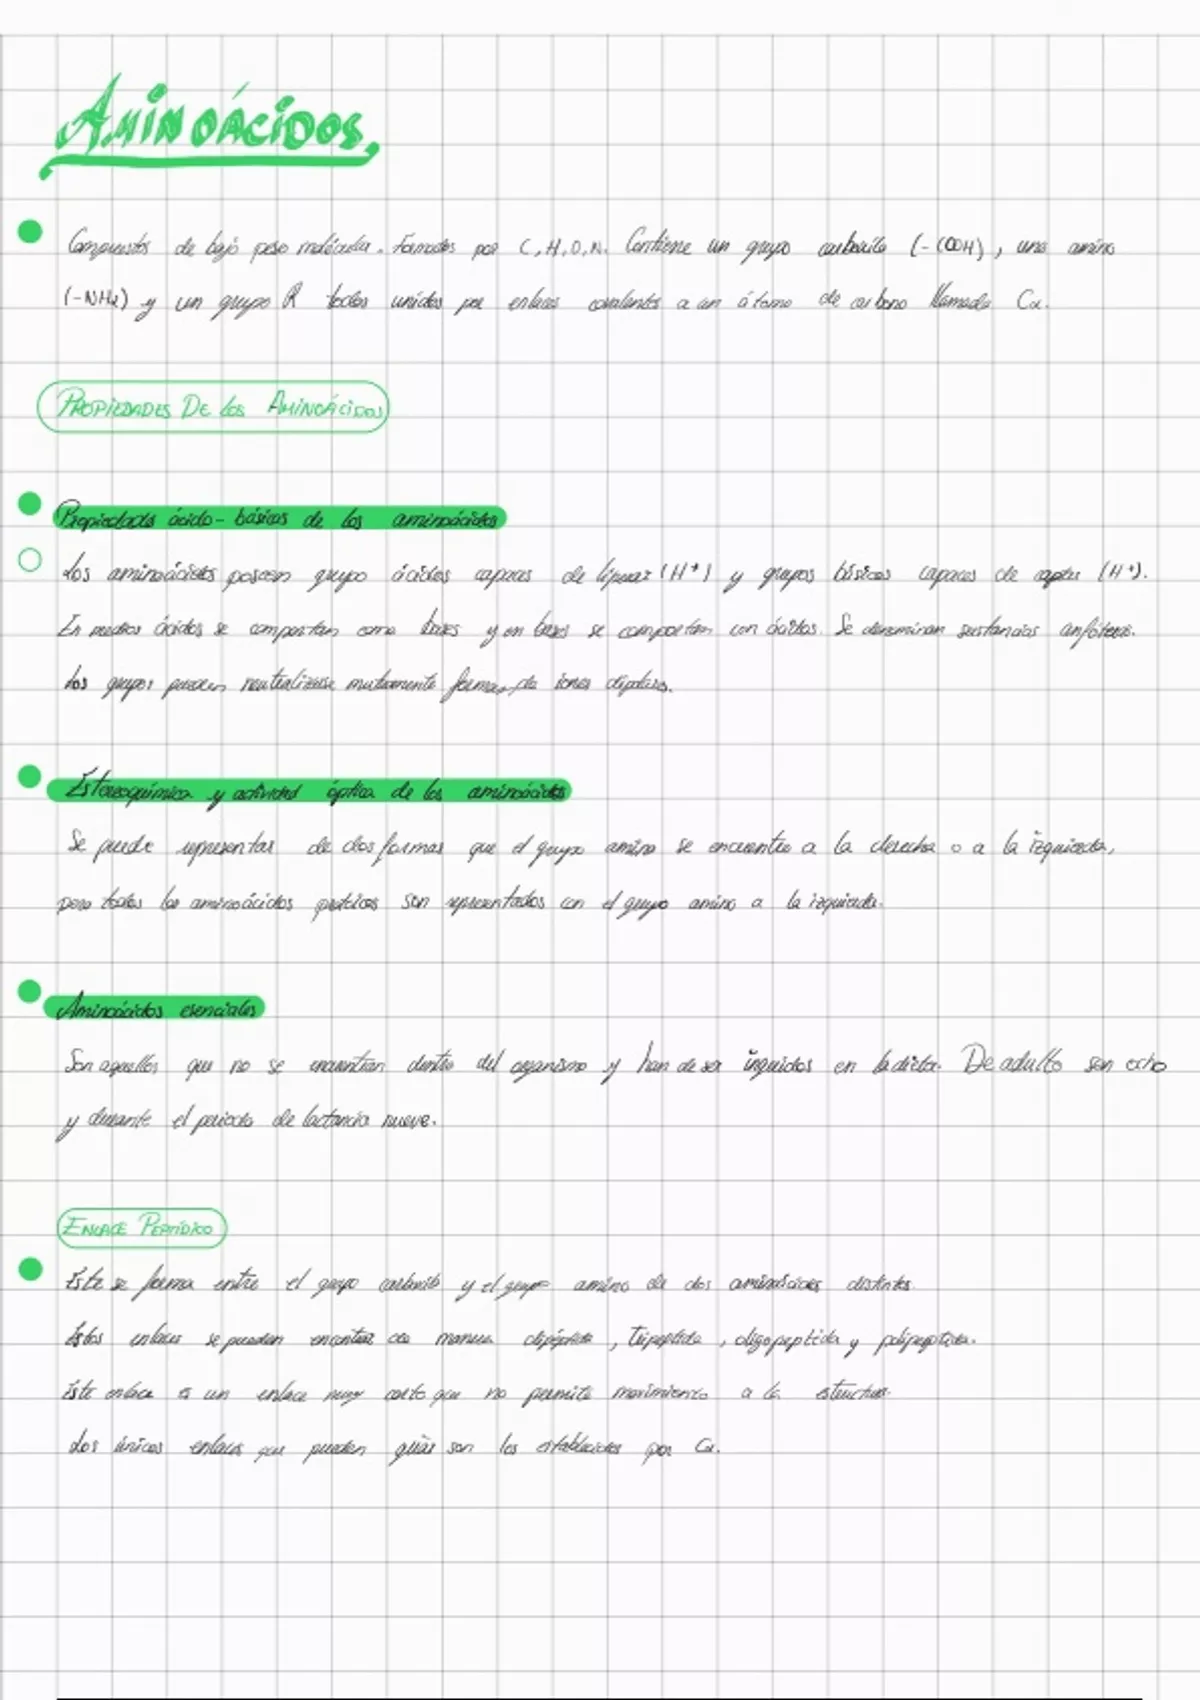 Aminoácidos.
Compuestos de bajo peso molécula. Formados por C,H,O,N. Contiene un grupo carboxilo (-COOH), uno amino
(-NH2) y un grupo R todos unidos por enlaces covalentes a un átomo de carbono llamado Cα.
PROPIEDADES DE LOS AMINOÁCIDOS
Propiedades ácido-básicas de los aminoácidos
Los aminoácidos poseen grupo ácidos capaces de liperar (H+) y grupos básicos capaces de captar (H+).
En medios ácidos se comportan como bases y en bases se comportan con ácidos. Se denominan sustancias anfóteras.
Los grupos pueden neutralizarse mutuamente formando iones dipolares.
Estereoquímica y actividad óptica de los aminoácidos
Se puede representar de dos formas que el grupo amino se encuentre a la derecha o a la izquierda,
pero todos los aminoácidos proteicos son representados con el grupo amino a la izquierda.
Aminoácidos esenciales
Son aquellos que no se encuentran dentro del organismo y han de ser inguidos en la dieta. De adulto son ocho
y durante el periodo de lactancia nueve.
ENLACE PEPTÍDICO
Este se forma entre el grupo carboxilo y el grupo amino de dos aminoácidos distintos.
Estos enlaces se pueden encontrar de manera dipéptido, Tripeptido, oligopeptido y polipeptido.
Este enlace es un enlace muy corto que no permite movimiento a la estructura.
Los únicos enlaces que pueden girar son los establecidos por Cα.